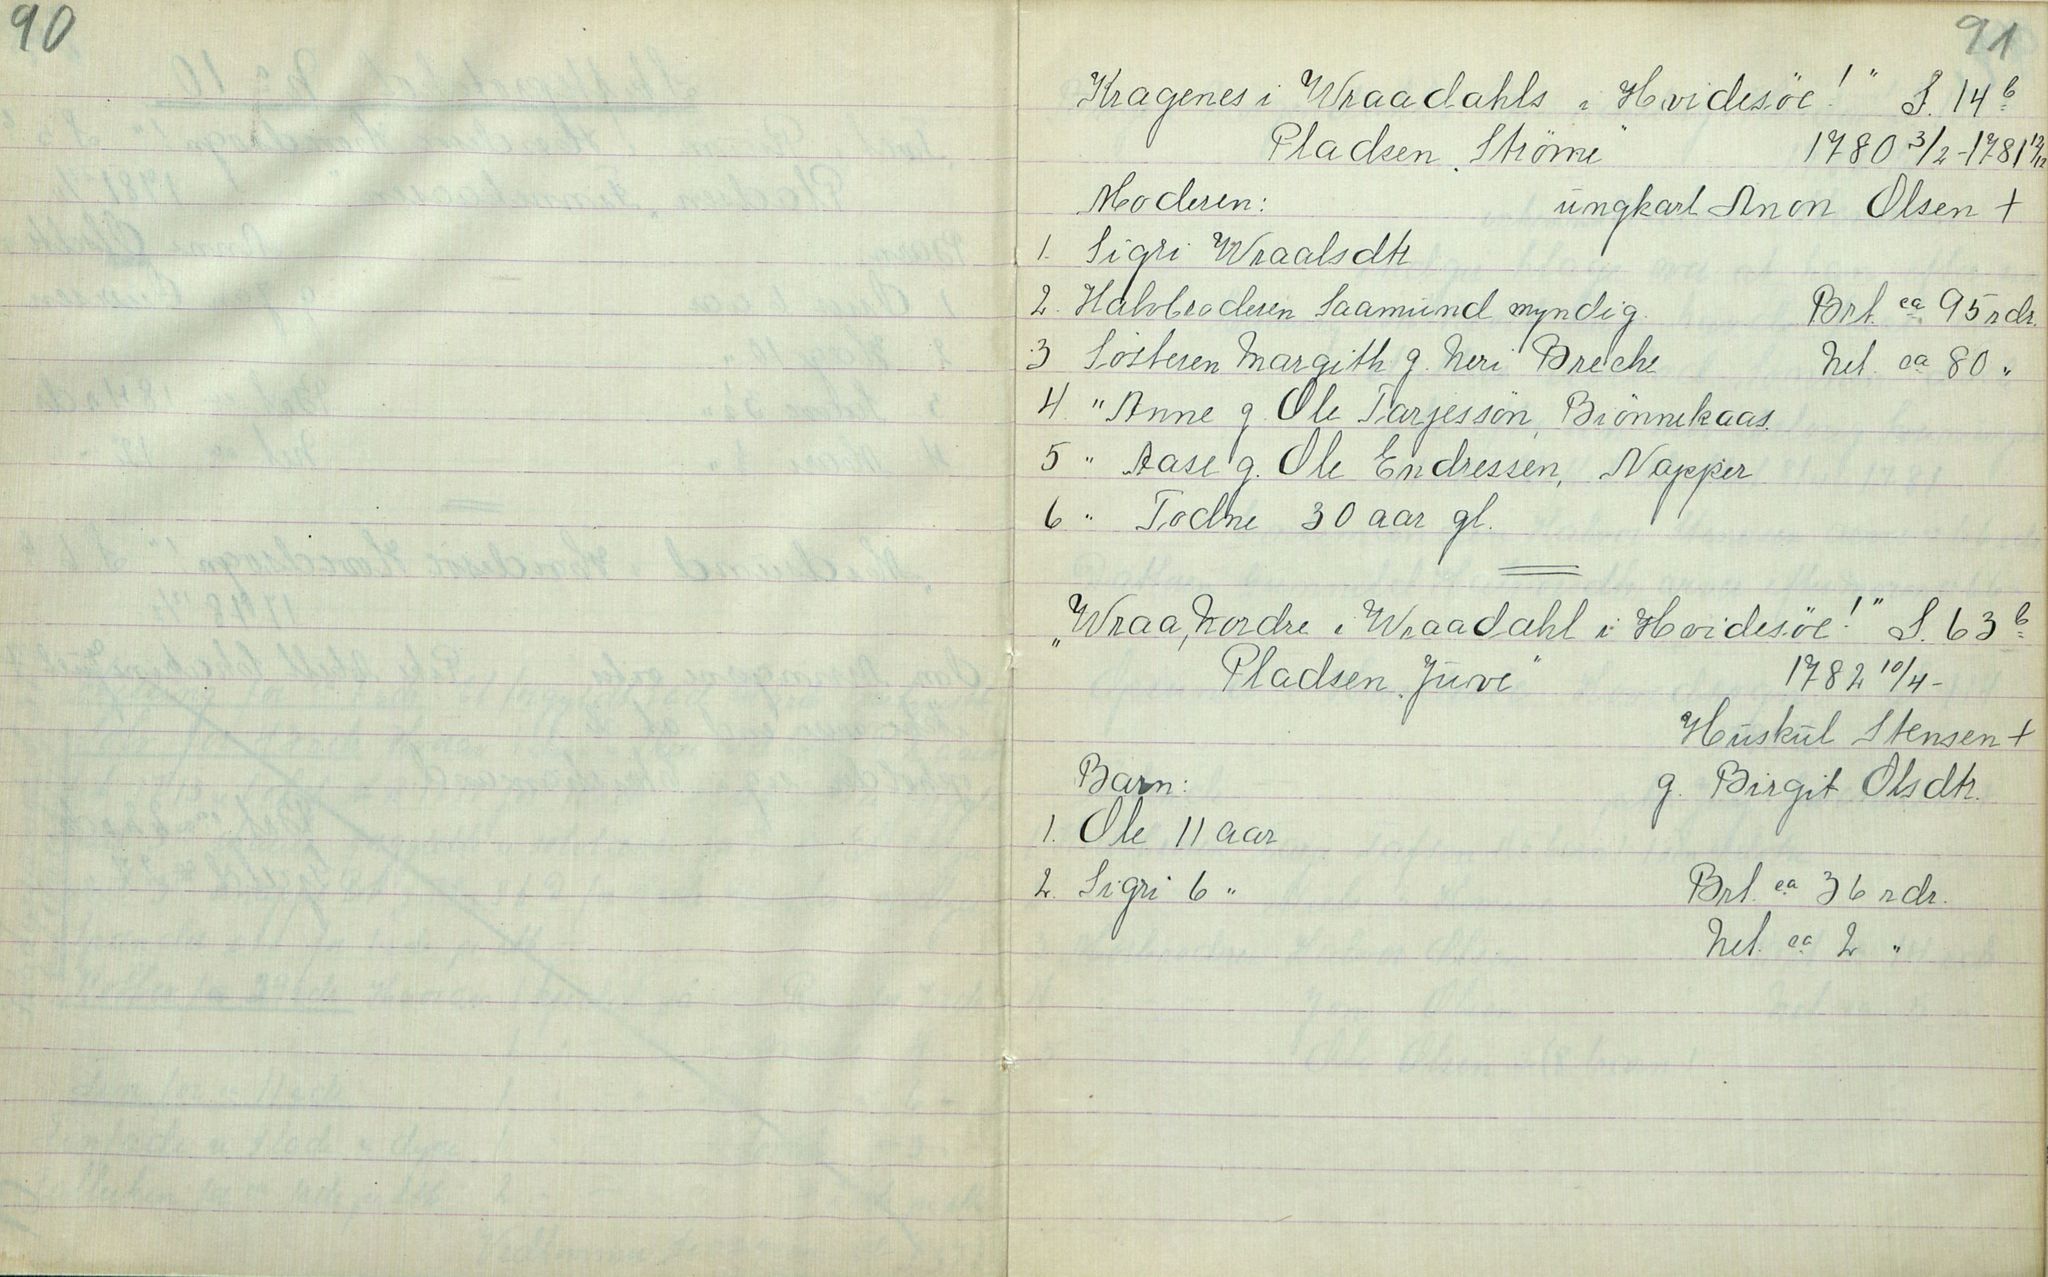 90
91
Kragenes i Wraadahls i Hvidesöe!" S. 14 b
Pladsen "Strömi" 1780 3/2 - 1781 12/12
Moderen: ungkarl Anon Olsen +
1. Sigri Wraalsdtr
2. Halvbroderen Saamund myndig. Brt. ca 95 rdr.
3 Söstersen Margith g. Neri Breche Net. ca 80 "
4. " Anne g. Ole Tarjessön, Biönnekaas.
5 " Aase g. Ole Endressen, Napper
6 " Todne 30 aar gl.
"Wraa, Nordre i Wraadahl i Hvidesöe!" S. 63 b
Pladsen "Juve" 1782 10/4 -
Huskul Stensen +
Barn: g. Birgit Olsdtr.
1. Ole 11 aar
2. Sigri 6 " Brt. ca 36 rdr.
Net. ca 2 "